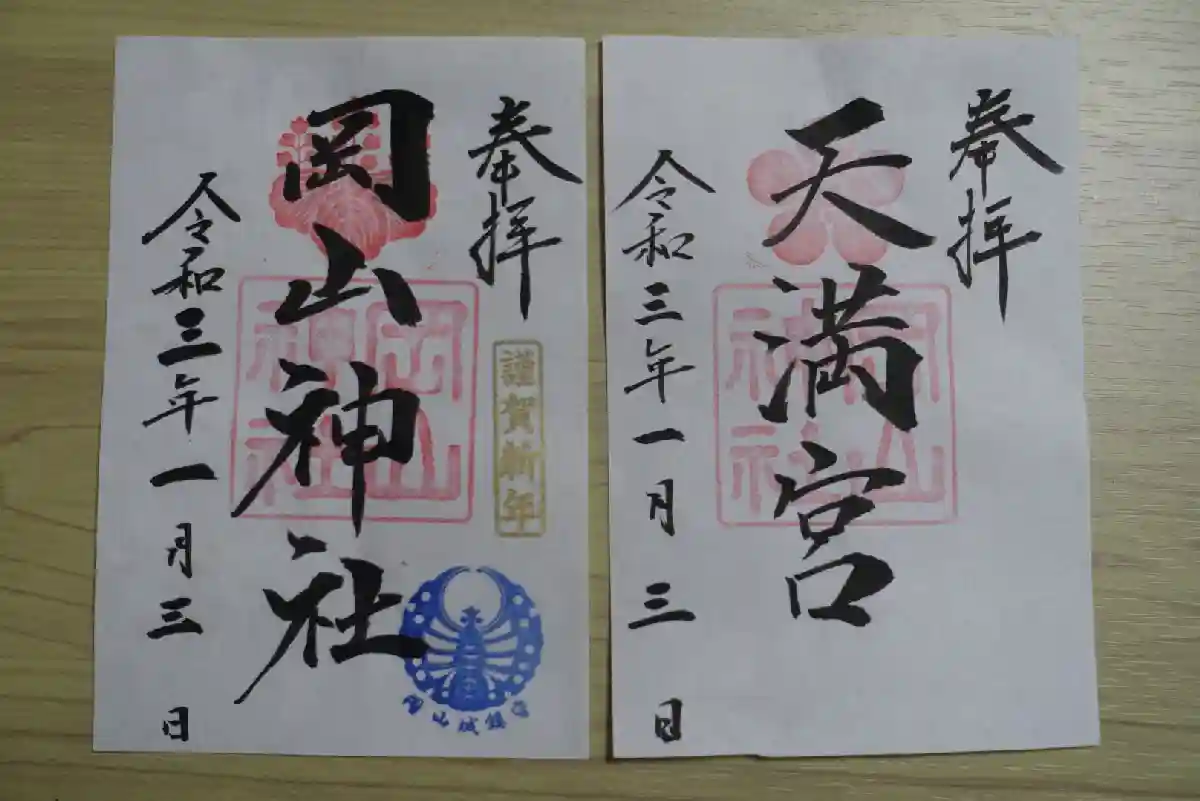 奉拝
岡山神社
令和三年一月三日
謹賀新年
岡山神社
岡山城鎮守
奉拝
天満宮
令和三年一月三日
岡山神社